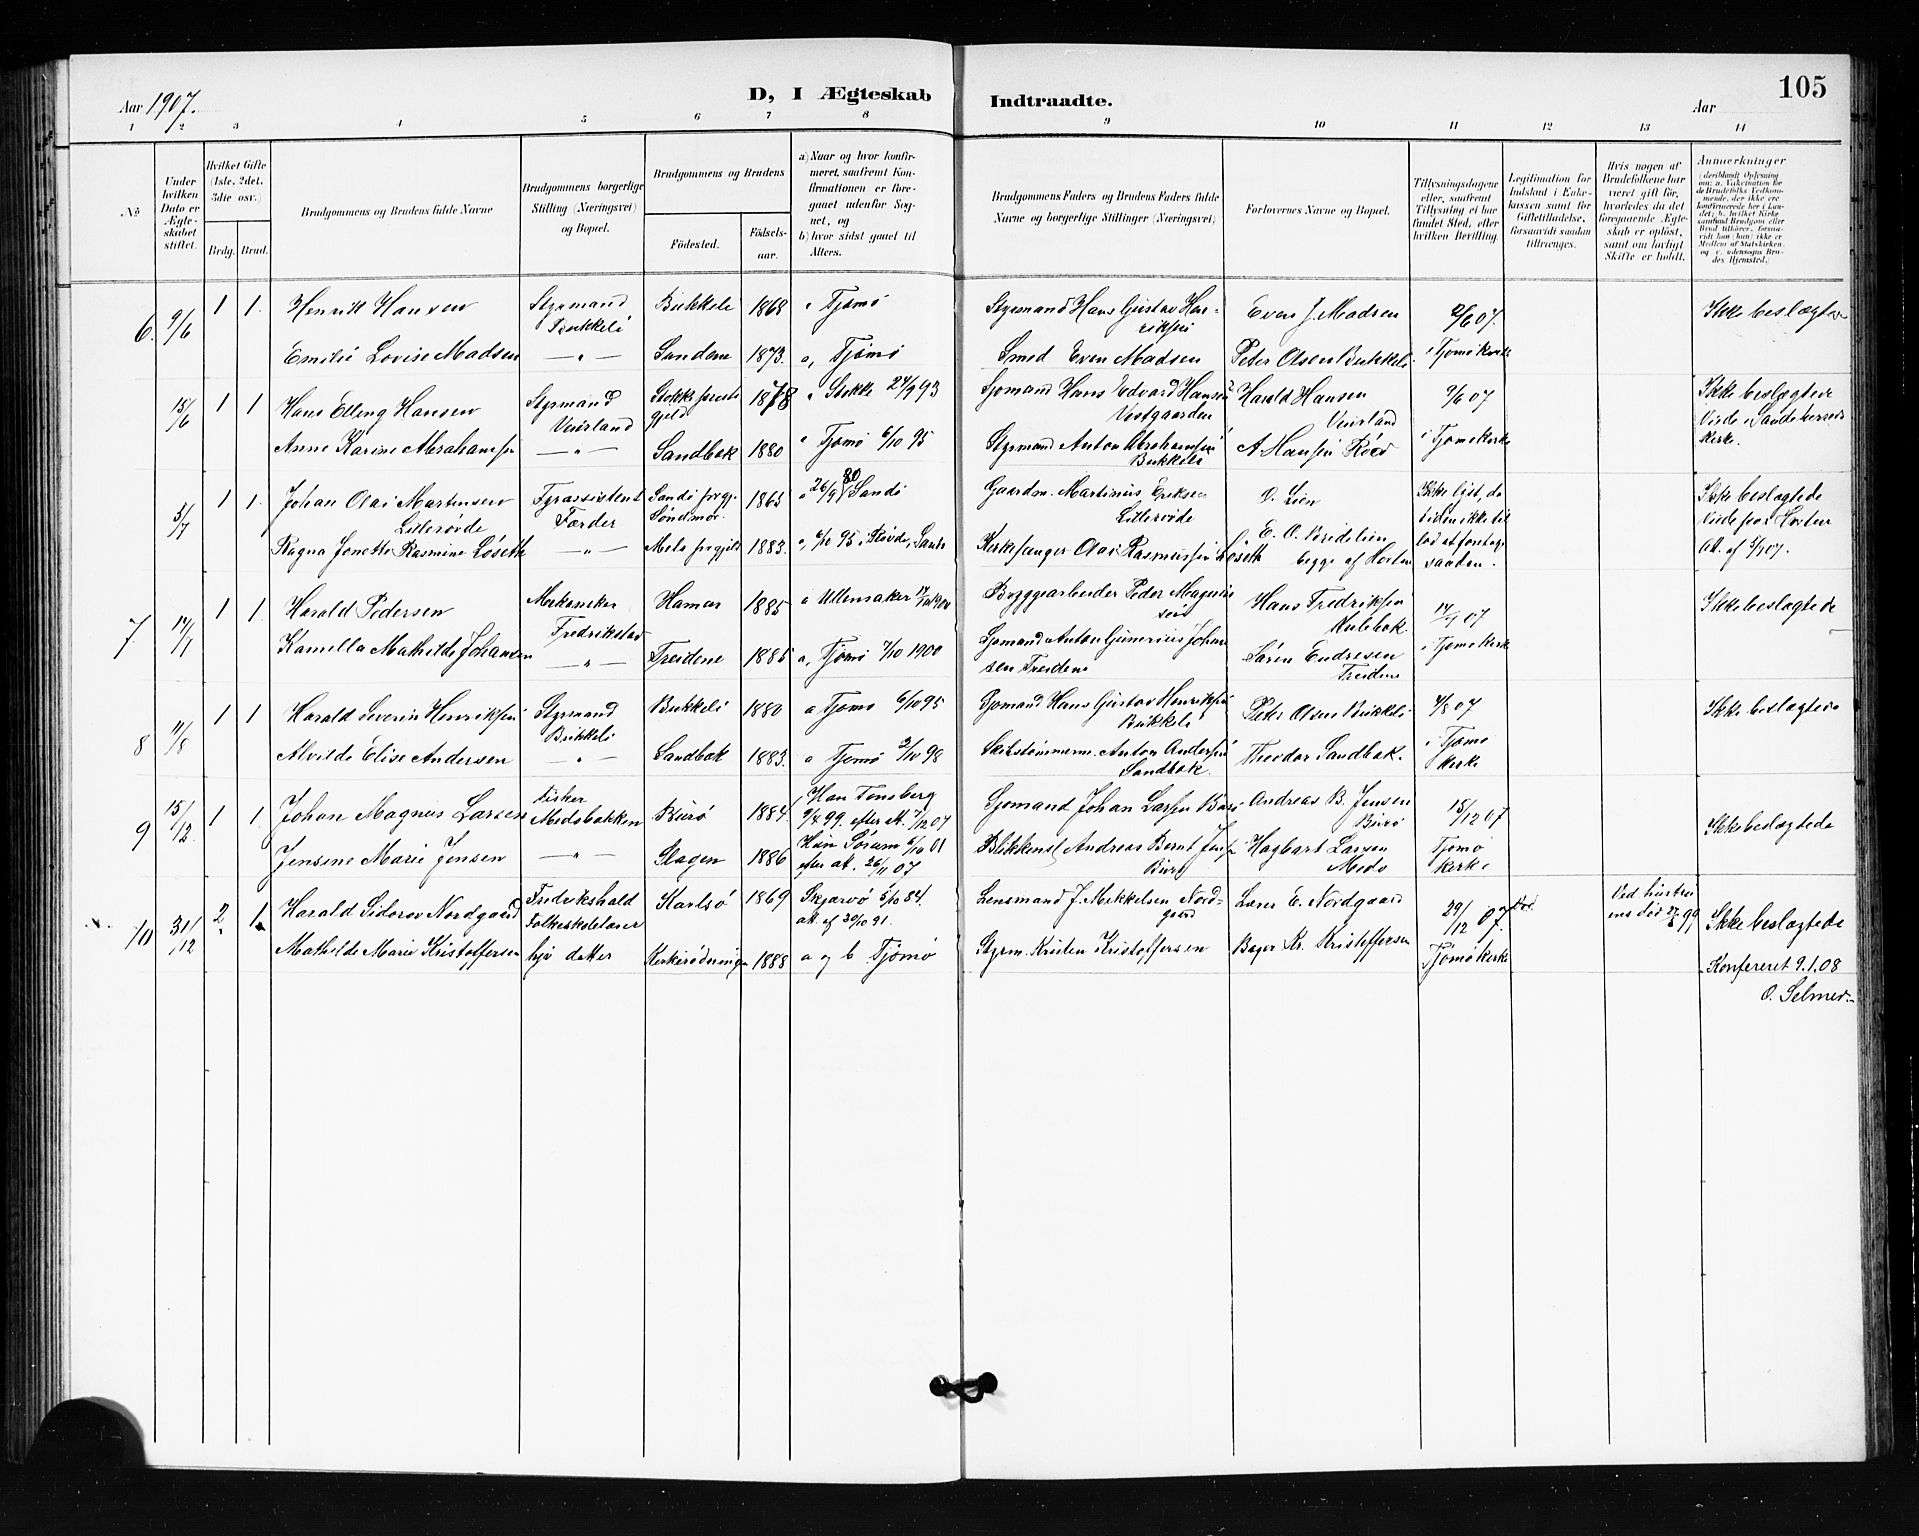 Aar 1907.
D, I Ægteskab Indtraadte.
Aar
105
1 2 3 4 5 6 7 8 9 10 11 12 13 14
No
Under hvilken Dato er Ægteskabet stiftet.
Hvilket Gifte (1ste, 2det, 3die osv.)
Brdg. Brud.
Brudgommens og Brudens fulde Navne
Brudgommens borgerlige Stilling (Næringsvei) og Bopæl.
Brudgommens og Brudens
Födested.
Födselsaar.
a) Naar og hvor konfirmeret, saafremt Konfirmationen er foregaaet udenfor Sognet, og
b) hvor sidst gaaet til Alters.
Brudgommens Faders og Brudens Faders fulde Navne og borgerlige Stillinger (Næringsvei)
Forlovernes Navne og Bopæl.
Tillysningsdagene eller, saafremt Tillysning ei har fundet Sted, efter hvilken Bevilling.
Legitimation for Indskud i Enkekassen samt for Giftetilladelse, forsaavidt saadan tiltrænges.
Hvis nogen af Brudefolkene har været gift för, hvorledes da det foregaaende Ægteskab er oplöst, samt om lovligt Skifte er holdt.
Anmerkninger
6. 9/6 1 1. Henrik Hansen Styrmand Bukkele 1868 Tjømø Styrmand Hans Gustav Henriksen Even J. Madsen 2/6 07. Ikke beslægtede
Emilie Lovise Madsen — " — Sandene 1873. a, Tjømø Smed Even Madsen Peter Olsen Bukkeli i Tjømø Kirke
15/6 1 1 Hans Elling Hansen Styrmand Veierland Stokke præstegjeld 1878 Stokke 24/9 93 Sjømand Hans Edvard Hansen Vestgaarden Harald Hansen Veierland 9/6 07 Ikke beslægtede
Anne Karine Abrahamsen — " — Sandbæk 1880 Tjømø 6/10 95 Styrmand Anton Abrahamsen Bukkeli A Hansen Röed i Tjømø Kirke
3/7 1 1. Johan Olai Martinsen Lillerøvde Fyrassistent Færder Sandö prgj. Søndmør 1865 26/9 80 Sandö Gaardm. Martinus Eriksen Lillerøvde O. Lien Ikke lyst, da tiden ikke tillod at foretage saadan. Ikke beslægtede
Viede paa Horten
Att. af 3/7 07.
Ragna Jonette Rasmine Løseth — " — 1883. 6/10 95 Kirkesanger Olai Rasmussen Løseth begge af Horten
7 14/7 1 1. Harald Pedersen Mekaniker Fredrikstad Hamar 1885 a Ullensaker 1900 Byggearbeider Peder Magnussen Hans Fredriksen Kulebæk 14/7 07 Ikke beslægtede
Kamilla Mathilde Johansen — " — Treidene 1885 a, Tjømø 7/10 1900 Sjømand Anton Gunerius Johansen Treidene Søren Endresen Treidene i Tjømø Kirke
8 11/8 1 1 Harald Severin Henriksen Styrmand Bukkeli Bukkeli 1880 a Tjømø 6/10 95 Sjømand Hans Gustav Henriksen Bukkeli Peter Olsen Bukkeli 4/8 07 Ikke beslægtede
Alvilde Elise Andersen — " — Sandbæk 1883. a Tjømø 2/10 98 Skibstømmerm. Anton Andersen Sandbæk. Theodor Sandbæk. i Tjømø Kirke
9 15/12 1 1. Johan Magnus Larsen Fisker Medobakken Burø 1884. Han Tønsberg 9/4 99. efter At. 7/12 07 Sjømand Johan Larsen Burø Andreas B. Jensen Burø 15/12 07 Ikke beslægtede
Jensine Marie Jensen — " — Slagen 1886 Hun Sörum 6/10 01 efter at. 26/11 07 Blikkensl Andreas Bernt Jensen Burø Hagbart Larsen Medo Tjømø Kirke
10 31/12 2. 1. Harald Sidorov Nordgaard Fredrikshald Folkeskolelærer Karlsö 1869 Skjærvö 5/10 84. att. af 30/10 91. Lensmand J. Mikkelsen Nordgaard Lærer E. Nordgaard 29/12 07. Ved hustruens død 99 Ikke beslægtede
Mathilde Marie Kristoffersen hjv datter Kirkerødningen 1888 a og b Tjømø Styrm. Kristen Kristoffersen Bager Kr. Kristoffersen Tjømø Kirke
Konfereret 9.1.08
O. Selmer.